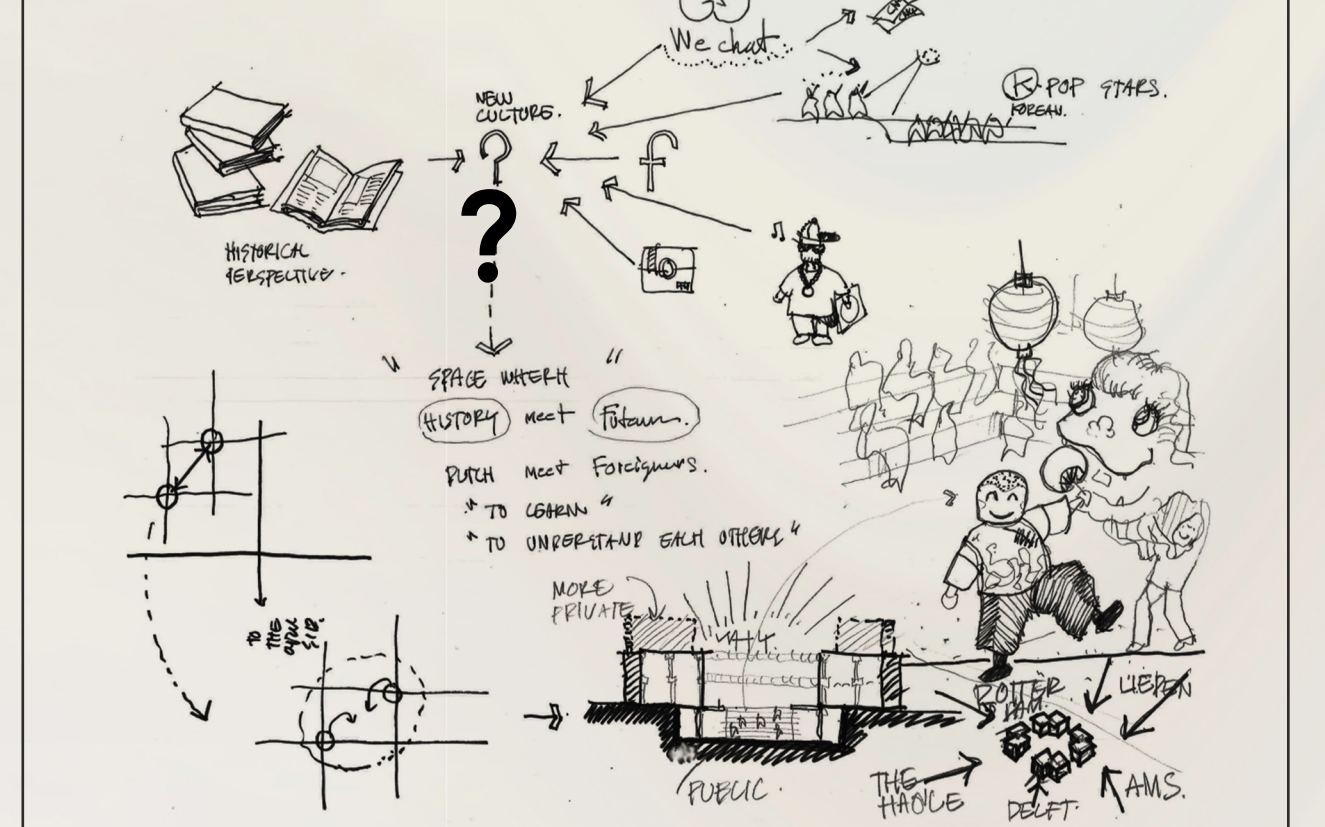 We chat
K-POP STARS.
KOREAN.
NEW
CULTURE.
?
?
f
HISTORICAL
PERSPECTIVE.
" SPACE WHERH "
HISTORY meet Future.
DUTCH meet Foreigners.
" TO LEARN "
" TO UNDERSTAND EACH OTHERS "
MORE
PRIVATE
TO
THE
PUBLIC.
ROTTER
DAM.
LIEDEN
THE
HAGUE
DELFT.
AMS.